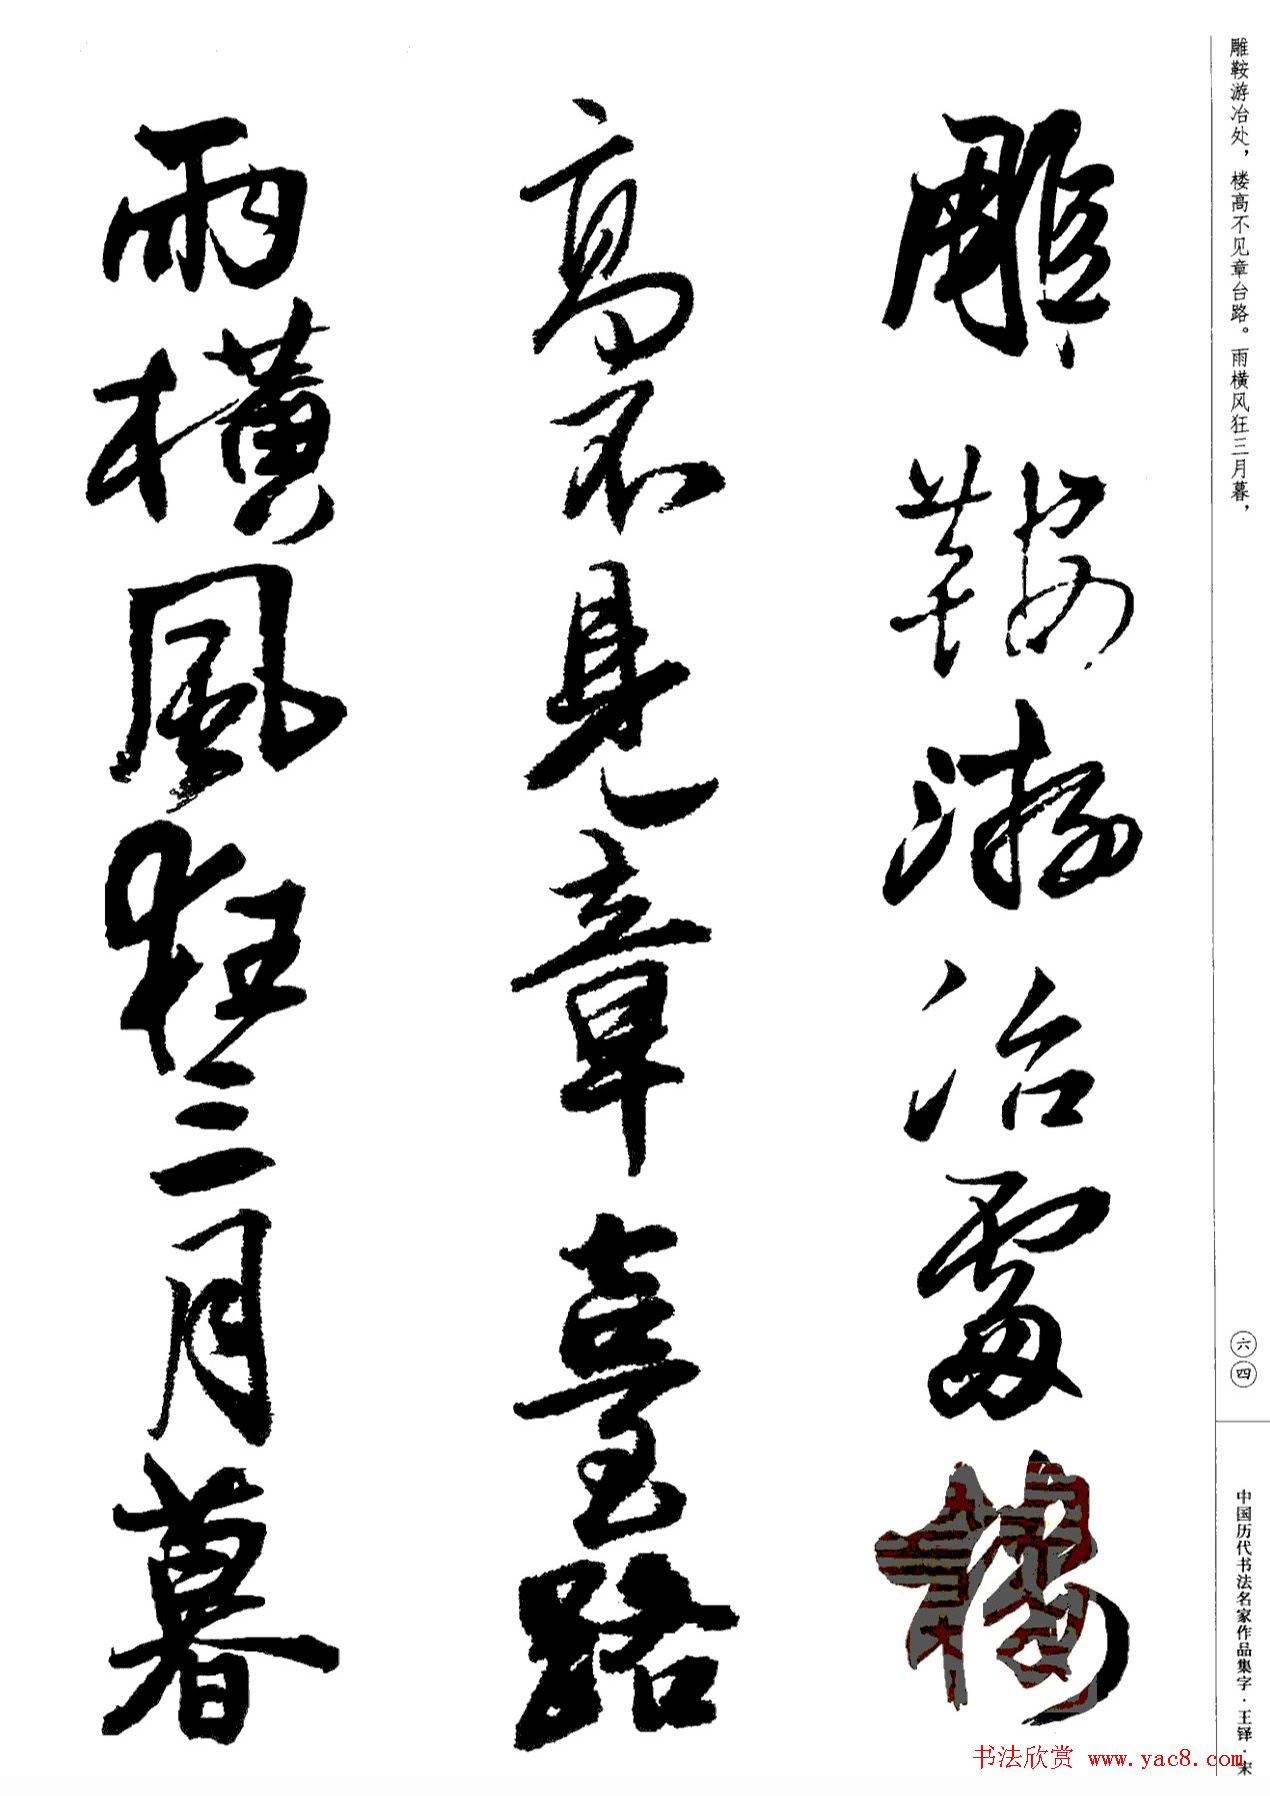 雕鞍游冶处，楼高不见章台路。雨横风狂三月暮，
雕鞍游冶處樓
高不見章臺路
雨橫風狂三月暮
六四
中国历代书法名家作品集字·王铎·宋
书法欣赏 www.yac8.com